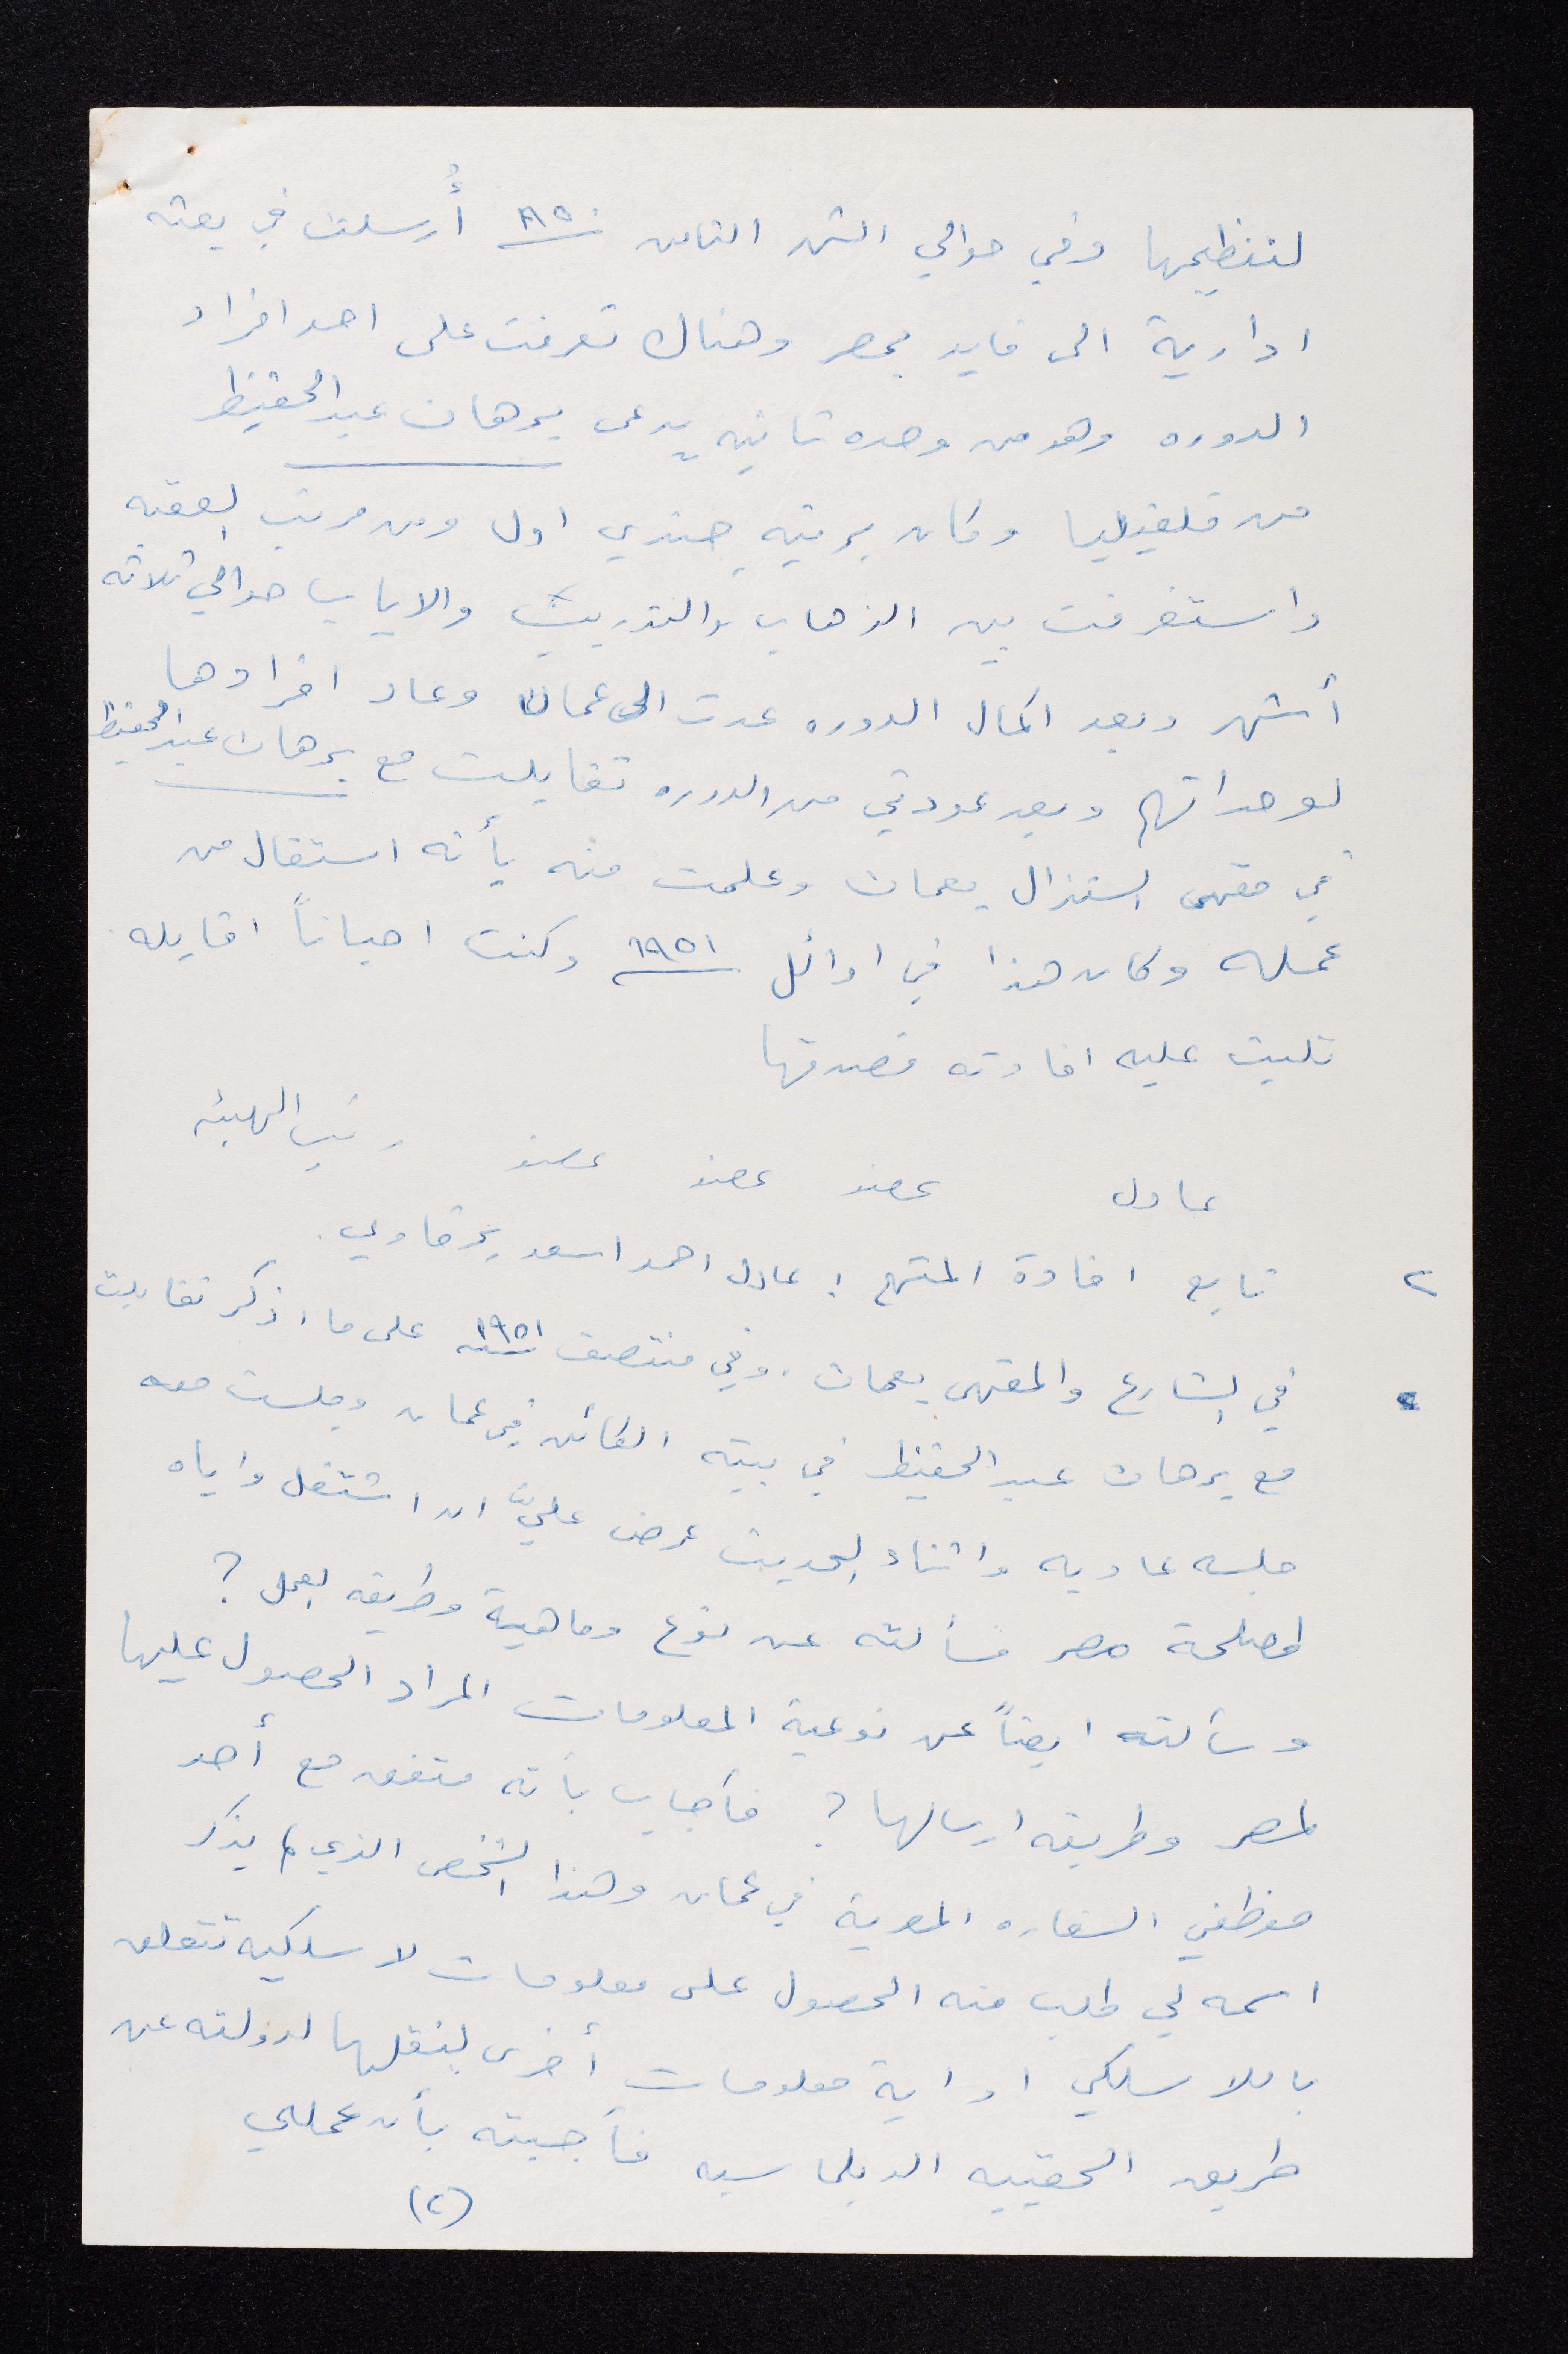 لتنظيمها وفي حوالي الشهر الثامن سنة ١٩٥٠ أُرسلت في بعثه
ادارية الى فايد بمصر وهناك تعرفت على احد افراد
الدوره وهو من وحده ثانيه يدعى برهان عبدالحفيظ
من قلقيليا وكان برتبه جندي اول ومن مرتب العقبه
واستغرقت بين الذهاب والتدريب والاياب حوالي ثلاثه
أشهر وبعد اكمال الدوره عدت الى عمان وعاد افرادها
لوحداتهم وبعد عودتي من الدوره تقابلت مع برهان عبدالحفيظ
في مقهى السنترال بعمان وعلمت منه بأنه استقال من
عمله وكان هذا في اوائل سنة ١٩٥١ وكنت احياناً اقابله
تليت عليه افادته فصدقها
عادل عضو عضو عضو رئيس الهيئه
٢ تابع افادة المتهم : عادل احمد اسعد برقاوي .
في الشارع والمقهى بعمان . وفي منتصف سنة ١٩٥١ على ما اذكر تقابلت
مع برهان عبدالحفيظ في بيته الكائن في عمان وجلست معه
جلسه عاديه واثناء الحديث عرض عليَّ ان اشتغل واياه
لمصلحة مصر فسألته عن نوع وماهية وطريقه العمل ؟
وسألته ايضاً عن نوعية المعلومات المراد الحصول عليها
لمصر وطريقه ارسالها ؟ فأجاب بأنه متفق مع أحد
موظفي السفاره المصرية في عمان وهذا الشخص الذي لم يذكر
اسمه لي طلب منه الحصول على معلومات لاسلكيه تتعلق
باللاسلكي او اية معلومات أخرى لينقلها لدولته عن
طريق الحقيبه الدبلماسيه فأجبته بأن عملي
(٢)